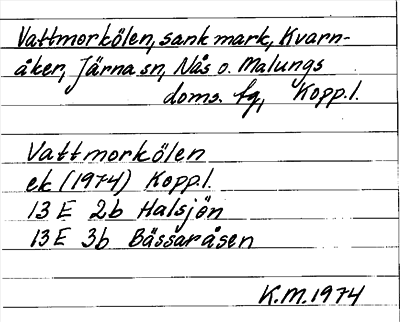 Vattmorkölen, sank mark, Kvarn-
åker, Järna sn, Nås o. Malungs
doms. fg, Kopp.l.
Vattmorkölen
ek (1974) Kopp.l.
13 E 2b Halsjön
13 E 3b Bässaråsen
K.M.1974